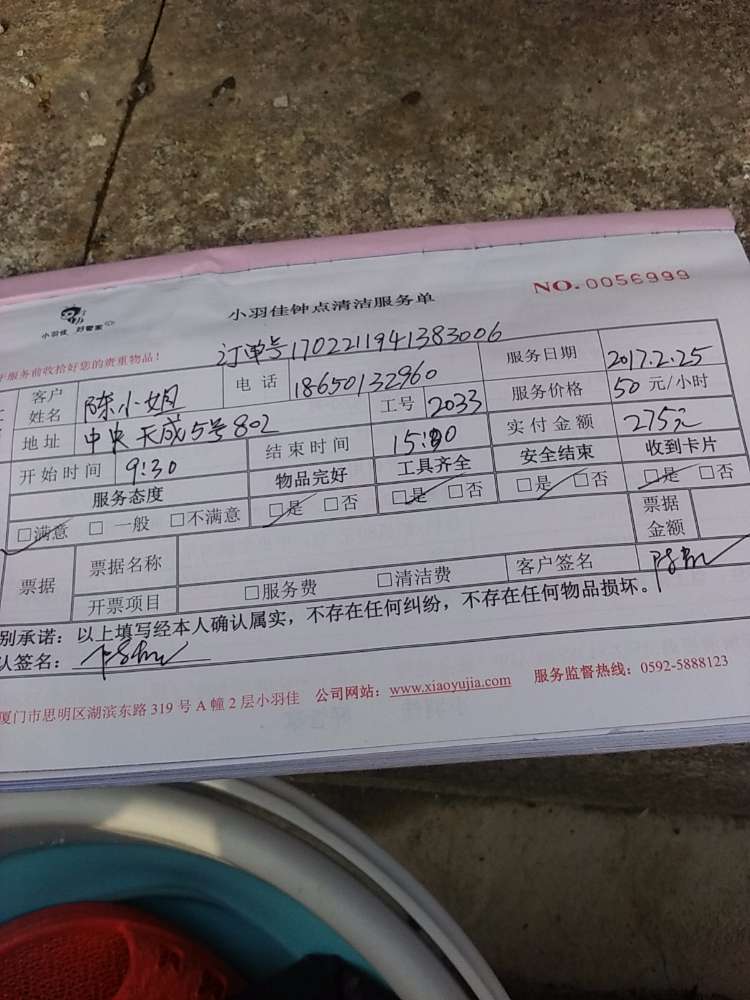 小羽佳 好管家
小羽佳钟点清洁服务单
NO.0056999
服务前收拾好您的贵重物品！
订单号1702211941383006
客户姓名 陈小姐 电话 18650132960 服务日期 2017.2.25
地址 中央天成5号802 工号 2033 服务价格 50 元/小时
开始时间 9:30 结束时间 15:00 实付金额 275元
服务态度 物品完好 工具齐全 安全结束 收到卡片
□满意 □一般 □不满意 □是 □否 □是 □否 □是 □否 □是 □否
票据 票据名称 票据金额
开票项目 □服务费 □清洁费 客户签名
别承诺：以上填写经本人确认属实，不存在任何纠纷，不存在任何物品损坏。
认签名：
厦门市思明区湖滨东路319号A幢2层小羽佳 公司网站：www.xiaoyujia.com 服务监督热线：0592-5888123